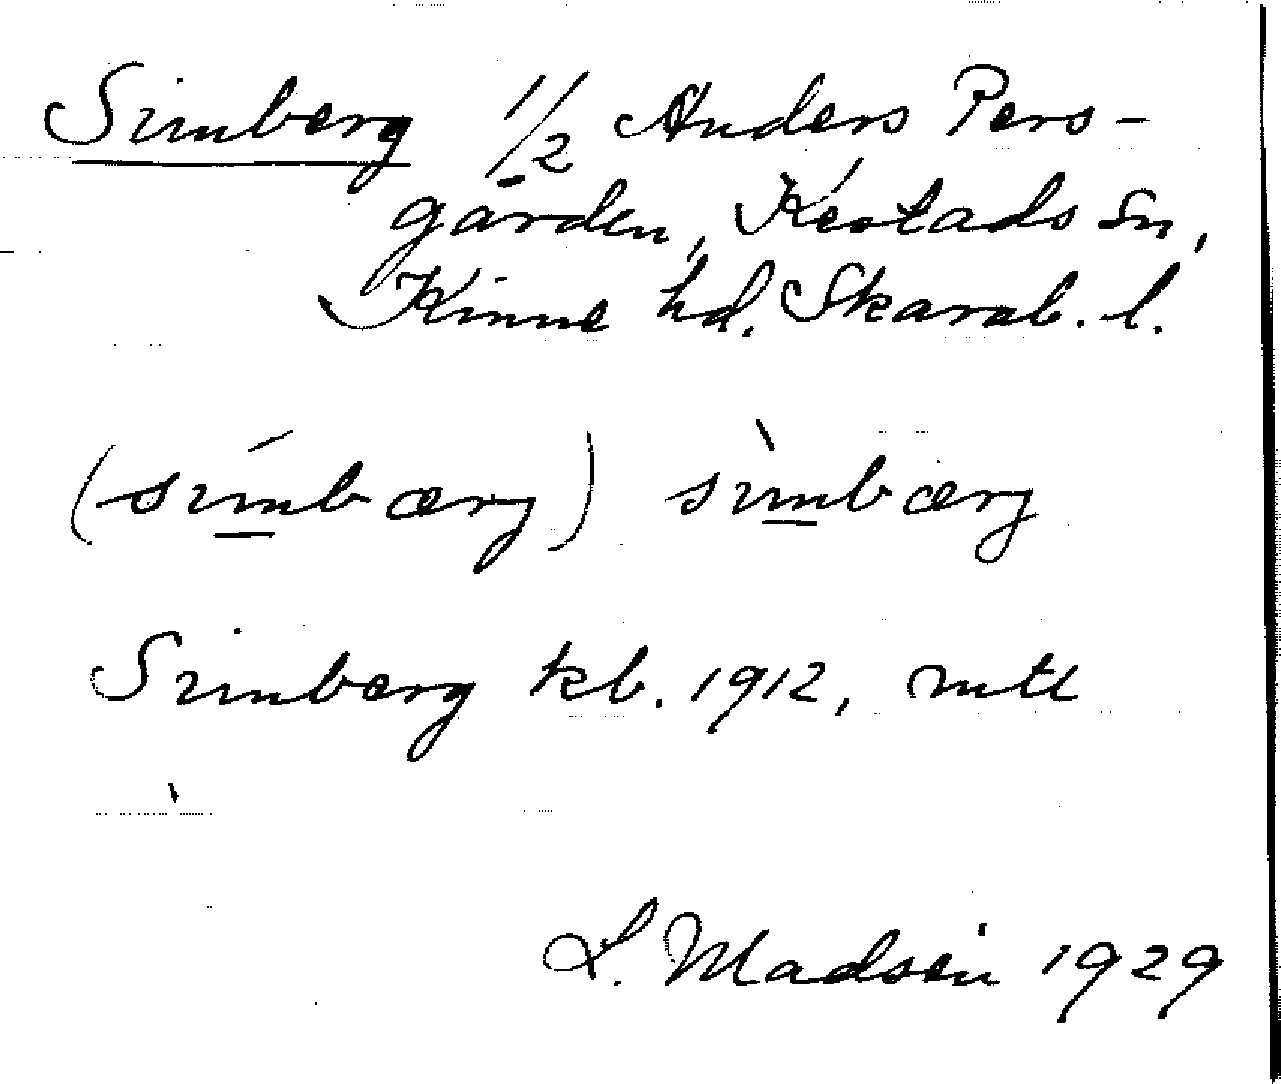 Simberg 1/2 Anders Pers-
gården, Kestads sn,
Kinne hd. Skarab. l.
(simbærg) simbærg
Simberg kb. 1912, mtl
L. Madsén 1929